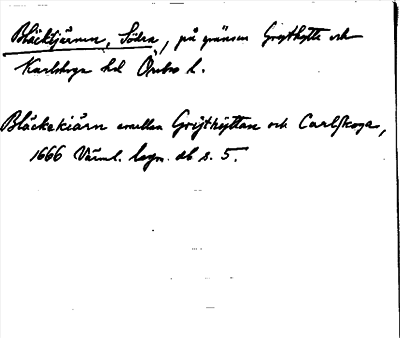 Bläcktjärnen, Södra, på gränsen Grythytte och
Karlskoga hd Örebro l.
Bläckekiärn emellan Grijthijttan och Carlskoga,
1666 Värml. legn. ab s. 5.